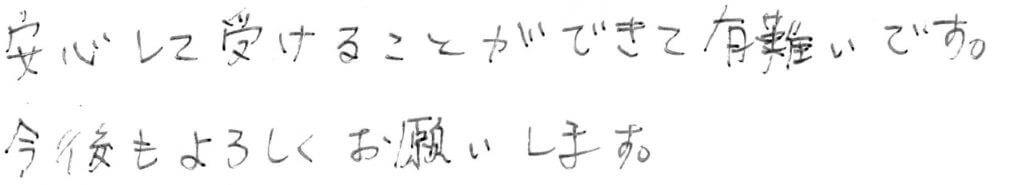 安心して受けることができて有難いです。
今後もよろしくお願いします。